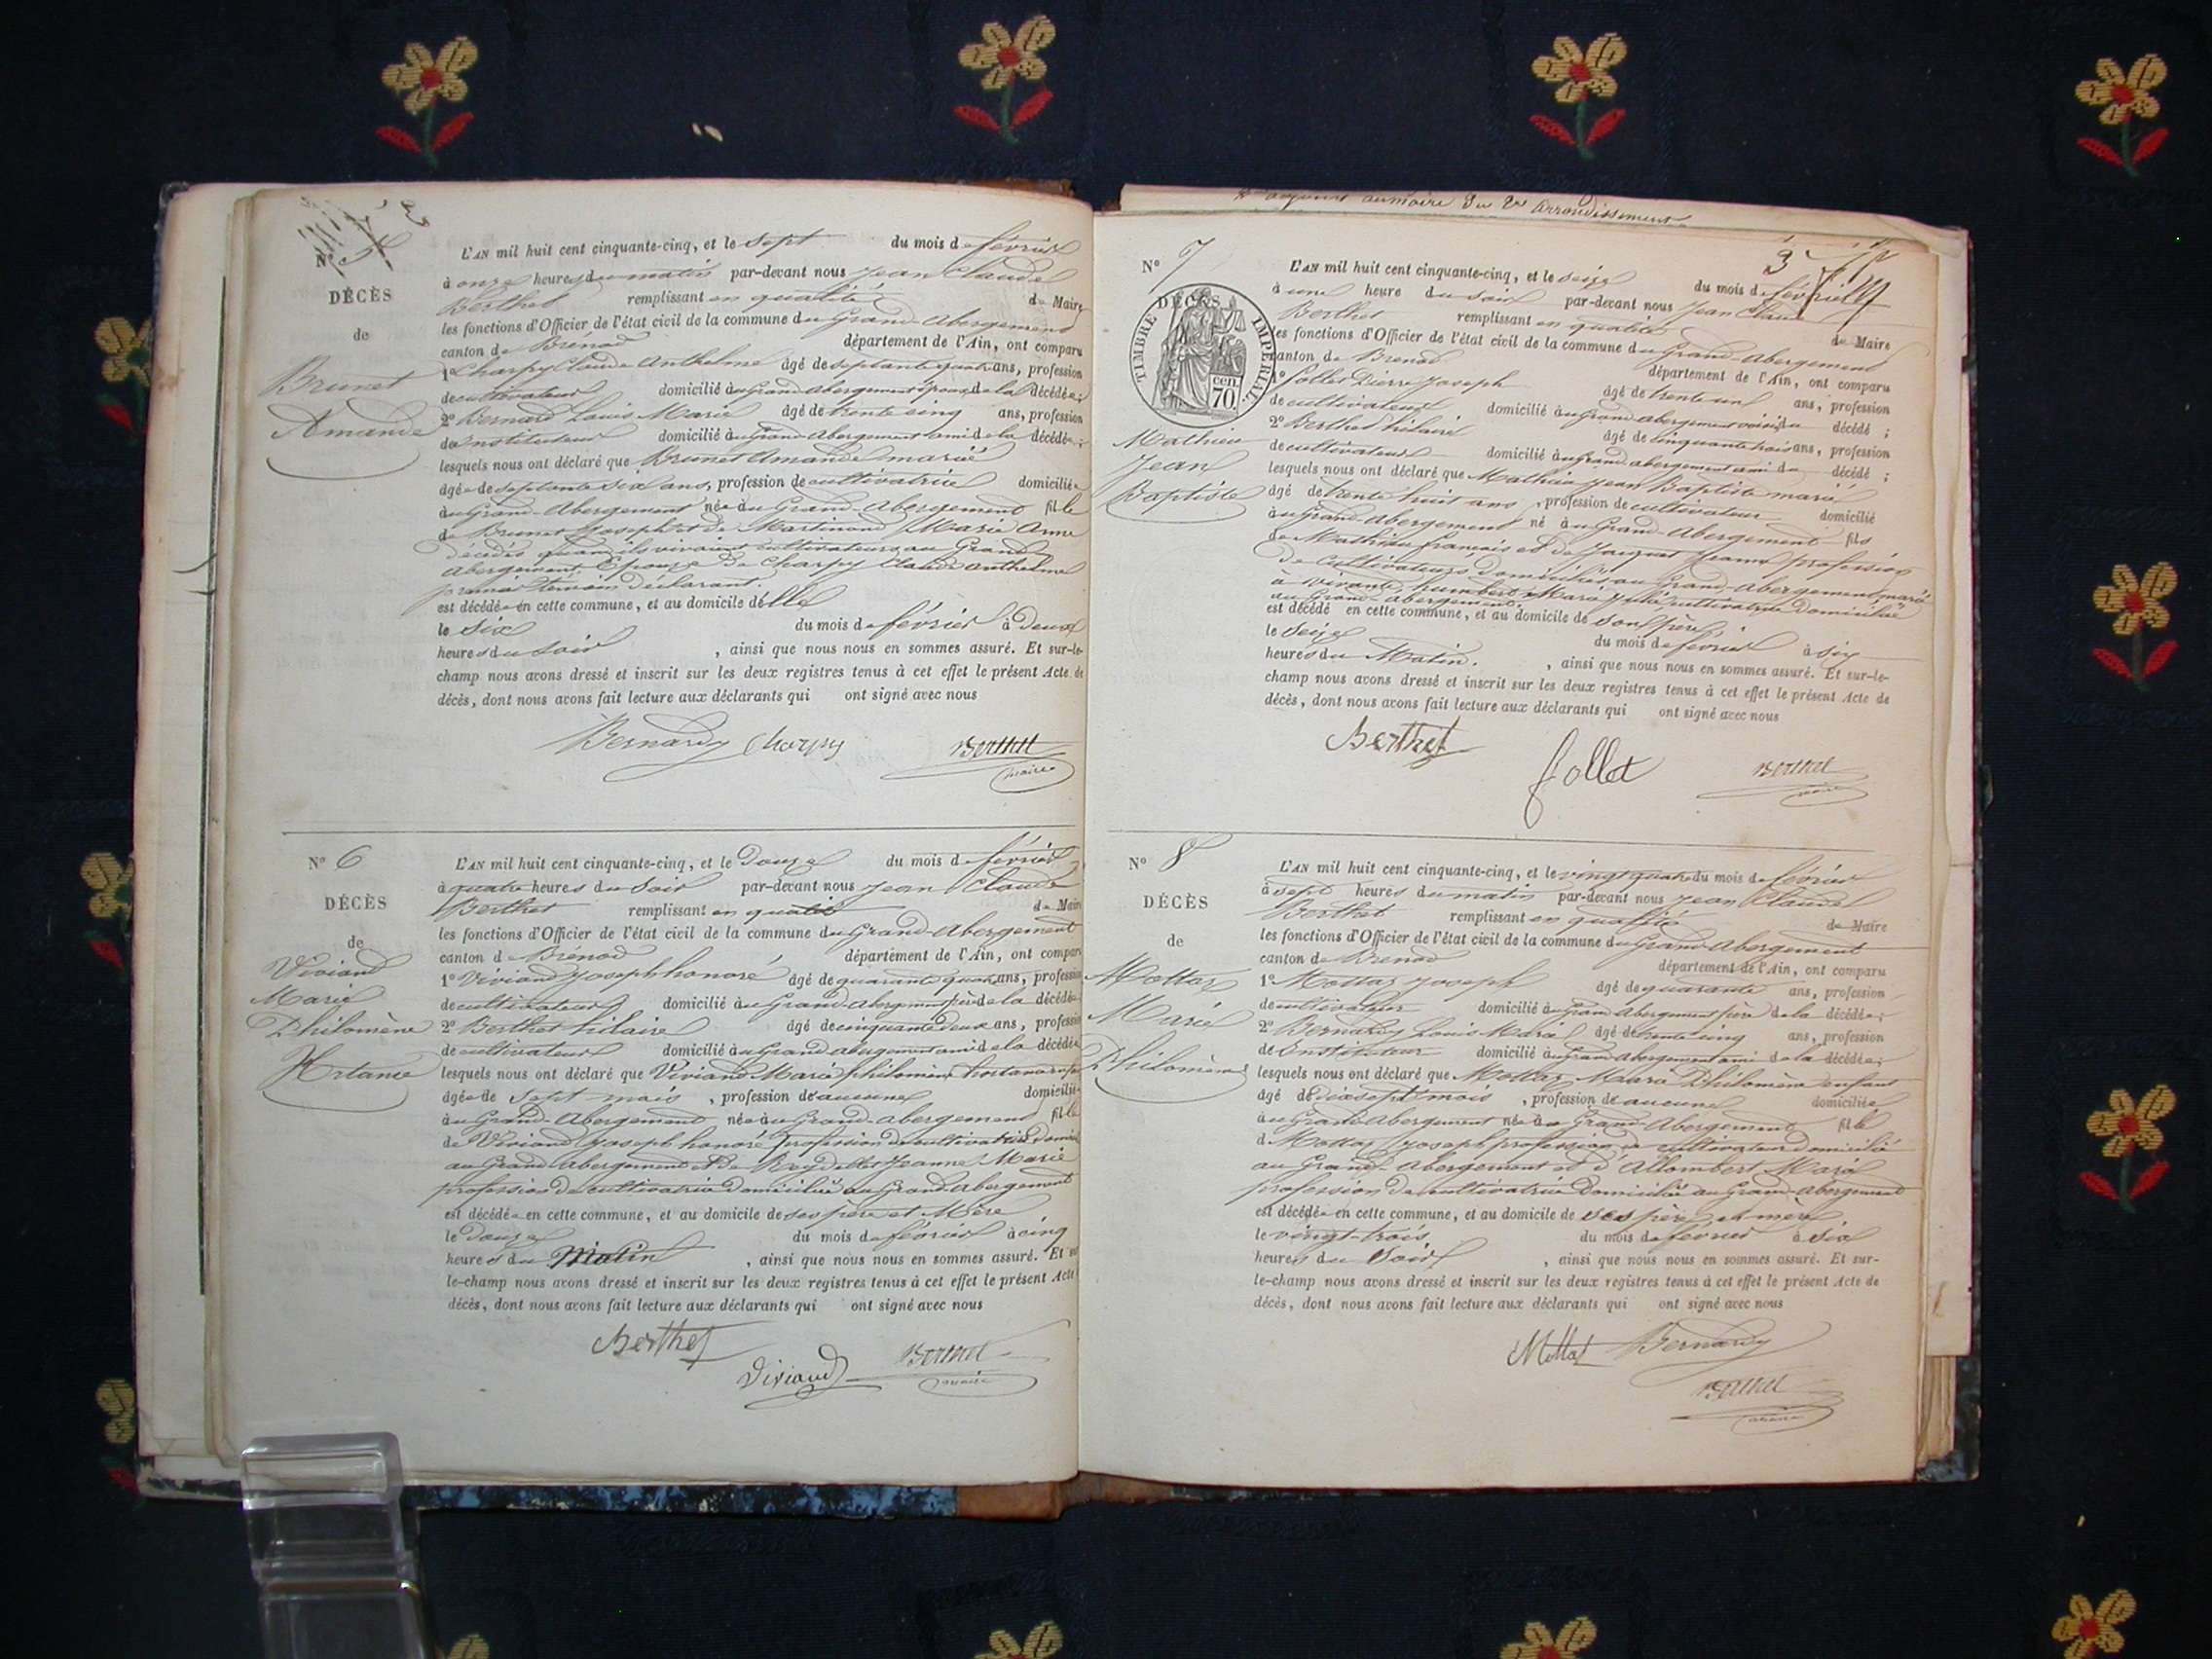 N° 5
DÉCÈS
de
Brunet
Amande
L'AN mil huit cent cinquante-cinq, et le sept du mois de février
à onze heures du matin par-devant nous Jean Claude
Berthet remplissant en qualité de Maire
les fonctions d'Officier de l'état civil de la commune du Grand-Abergement
canton de Brenod département de l'Ain, ont comparu
1° Charpy Claude Anthelme âgé de septante quatre ans, profession
de cultivateur domicilié au Grand-Abergement époux de la décédée;
2° Bernard Louis Marie âgé de trente cinq ans, profession
d'instituteur domicilié au Grand-Abergement ami de la décédée;
lesquels nous ont déclaré que Brunet Amande mariée
âgée de septante six ans, profession de cultivatrice domiciliée
au Grand-Abergement née au Grand-Abergement fille
de Brunet Joseph et de Martinand Marie Anne
décédés quand ils vivaient cultivateurs au Grand
Abergement Epouse de Charpy Claude Anthelme
premier témoin déclarant.
est décédée en cette commune, et au domicile d'elle
le six du mois de février à deux
heures du soir, ainsi que nous nous en sommes assuré. Et sur-le-
champ nous avons dressé et inscrit sur les deux registres tenus à cet effet le présent Acte de
décès, dont nous avons fait lecture aux déclarants qui ont signé avec nous
Bernardy Charpy Berthet
maire
N° 6
DÉCÈS
de
Viviand
Marie
Philomène
Hrtance
L'AN mil huit cent cinquante-cinq, et le douze du mois de février
à quatre heures du soir par-devant nous Jean Claude
Berthet remplissant en qualité de Maire
les fonctions d'Officier de l'état civil de la commune du Grand-Abergement
canton d Brénod département de l'Ain, ont comparu
1° Viviand Joseph honoré âgé de quarante quatre ans, profession
de cultivateur domicilié au Grand-Abergement père de la décédée
2° Berthet hilaire âgé de cinquante deux ans, profession
de cultivateur domicilié au Grand abergement ami de la décédée
lesquels nous ont déclaré que Viviand Marie philomène hortance
âgée de sept mois, profession de aucune domiciliée
au Grand-Abergement née au Grand-abergement fille
de Viviand Joseph honoré profession de cultivateur
au Grand abergement et de Reydellet Jeanne Marie
profession de cultivatrice domiciliée au Grand-Abergement
est décédée en cette commune, et au domicile de ses père et Mère
le Douze du mois de février à cinq
heures du Matin, ainsi que nous nous en sommes assuré. Et sur
le-champ nous avons dressé et inscrit sur les deux registres tenus à cet effet le présent Acte
décès, dont nous avons fait lecture aux déclarants qui ont signé avec nous
Berthet Viviand Berthet
maire
aumoire du arrondissement
3
N° 7
TIMBRE IMPÉRIAL
DÉCÈS
70 cen.
Mathieu
Jean
Baptiste
L'AN mil huit cent cinquante-cinq, et le seize du mois de février
à une heure du soir par-devant nous Jean Claude
Berthet remplissant en qualité de Maire
les fonctions d'Officier de l'état civil de la commune du Grand-Abergement
canton de Brenod département de l'Ain, ont comparu
1° follet Pierre Joseph âgé de trente un ans, profession
de cultivateur domicilié au Grand abergement voisin du décédé;
2° Berthet hilaire âgé de cinquante trois ans, profession
de cultivateur domicilié au Grand abergement ami du décédé;
lesquels nous ont déclaré que Mathieu Jean Baptiste marié
âgé de trente huit ans, profession de cultivateur domicilié
au Grand-Abergement né au Grand-Abergement fils
de Mathieu francois et de Jacquet profession
de cultivateurs domiciliés au Grand-Abergement marié
à vivante humbert Marie Julie cultivatrice domiciliée
au Grand-Abergement
est décédé en cette commune, et au domicile de son père
le seize du mois de février à six
heures du Matin., ainsi que nous nous en sommes assuré. Et sur-le-
champ nous avons dressé et inscrit sur les deux registres tenus à cet effet le présent Acte de
décès, dont nous avons fait lecture aux déclarants qui ont signé avec nous
Berthet follet Berthet
maire
N° 8
DÉCÈS
de
Mottaz
Marie
Philomène
L'AN mil huit cent cinquante-cinq, et le vingt quatre du mois de février
à sept heures du matin par-devant nous Jean Claude
Berthet remplissant en qualité de Maire
les fonctions d'Officier de l'état civil de la commune du Grand-Abergement
canton de Brenod département de l'Ain, ont comparu
1° Mottaz Joseph âgé de quarante ans, profession
de cultivateur domicilié au Grand Abergement père de la décédée;
2° Bernardy Louis Marie âgé de trente cinq ans, profession
de Instituteur domicilié au Grand Abergement ami de la décédée;
lesquels nous ont déclaré que Mottaz Marie Philomène enfant
âgé de dix sept mois, profession de aucune domiciliée
au Grand Abergement née au Grand-Abergement fille
d Mottaz Joseph profession de cultivateur domicilié
au Grand-Abergement et d'Allombert Marie
profession de cultivatrice domiciliée au Grand-Abergement
est décédée en cette commune, et au domicile de ses père et mère
le vingt-trois du mois de février à six
heures du Soir, ainsi que nous nous en sommes assuré. Et sur-
le-champ nous avons dressé et inscrit sur les deux registres tenus à cet effet le présent Acte de
décès, dont nous avons fait lecture aux déclarants qui ont signé avec nous
Mottaz Bernardy
Berthet
maire